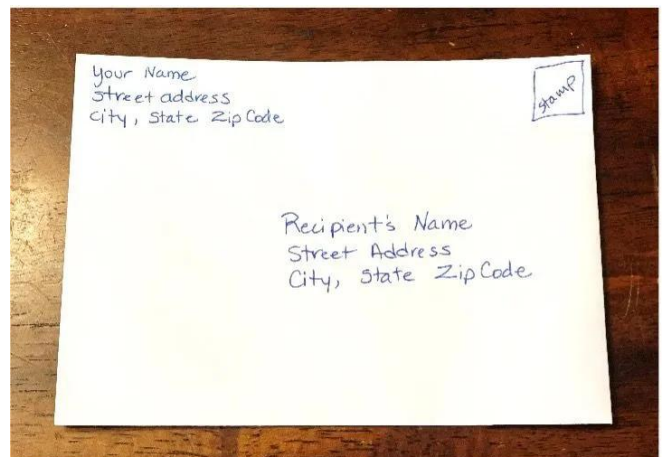 Your Name
Street address
City, State Zip Code
Stamp
Recipient's Name
Street Address
City, State Zip Code